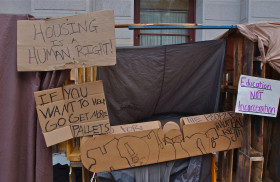 HOUSING
IS A
HUMAN RIGHT!
IF YOU
WANT TO HELP
GO GET MORE
PALLETS
Education
NOT
Incarceration